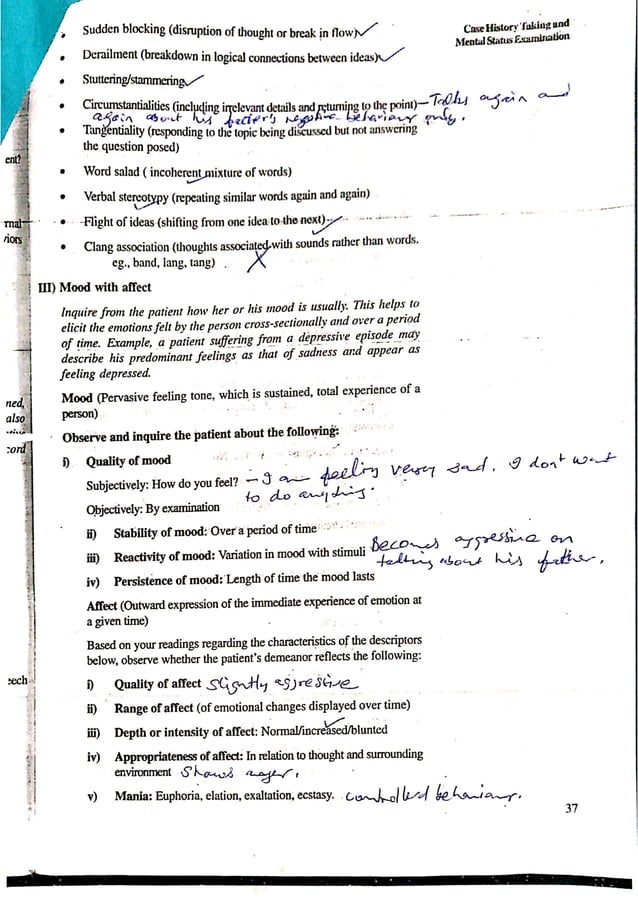 Case History Taking and
Mental Status Examination
• Sudden blocking (disruption of thought or break in flow)
• Derailment (breakdown in logical connections between ideas)
• Stuttering/stammering
• Circumstantialities (including irrelevant details and returning to the point) – Talks again and
again about his father's negative behaviour only.
• Tangentiality (responding to the topic being discussed but not answering
the question posed)
ent?
• Word salad ( incoherent mixture of words)
• Verbal stereotypy (repeating similar words again and again)
rnal
• Flight of ideas (shifting from one idea to the next)
riors
• Clang association (thoughts associated with sounds rather than words.
eg., band, lang, tang) .
III) Mood with affect
Inquire from the patient how her or his mood is usually. This helps to
elicit the emotions felt by the person cross-sectionally and over a period
of time. Example, a patient suffering from a depressive episode may
describe his predominant feelings as that of sadness and appear as
feeling depressed.
Mood (Pervasive feeling tone, which is sustained, total experience of a
person)
ned,
also
Observe and inquire the patient about the following:
cord
i) Quality of mood
Subjectively: How do you feel? – I am feeling verry sad. I don't want
to do anything.
Objectively: By examination
ii) Stability of mood: Over a period of time
iii) Reactivity of mood: Variation in mood with stimuli Becomes aggressive on
talking about his father.
iv) Persistence of mood: Length of time the mood lasts
Affect (Outward expression of the immediate experience of emotion at
a given time)
Based on your readings regarding the characteristics of the descriptors
below, observe whether the patient's demeanor reflects the following:
eech
i) Quality of affect slightly aggressive
ii) Range of affect (of emotional changes displayed over time)
iii) Depth or intensity of affect: Normal/increased/blunted
iv) Appropriateness of affect: In relation to thought and surrounding
environment Shows anger.
v) Mania: Euphoria, elation, exaltation, ecstasy. Controlled behaviour.
37